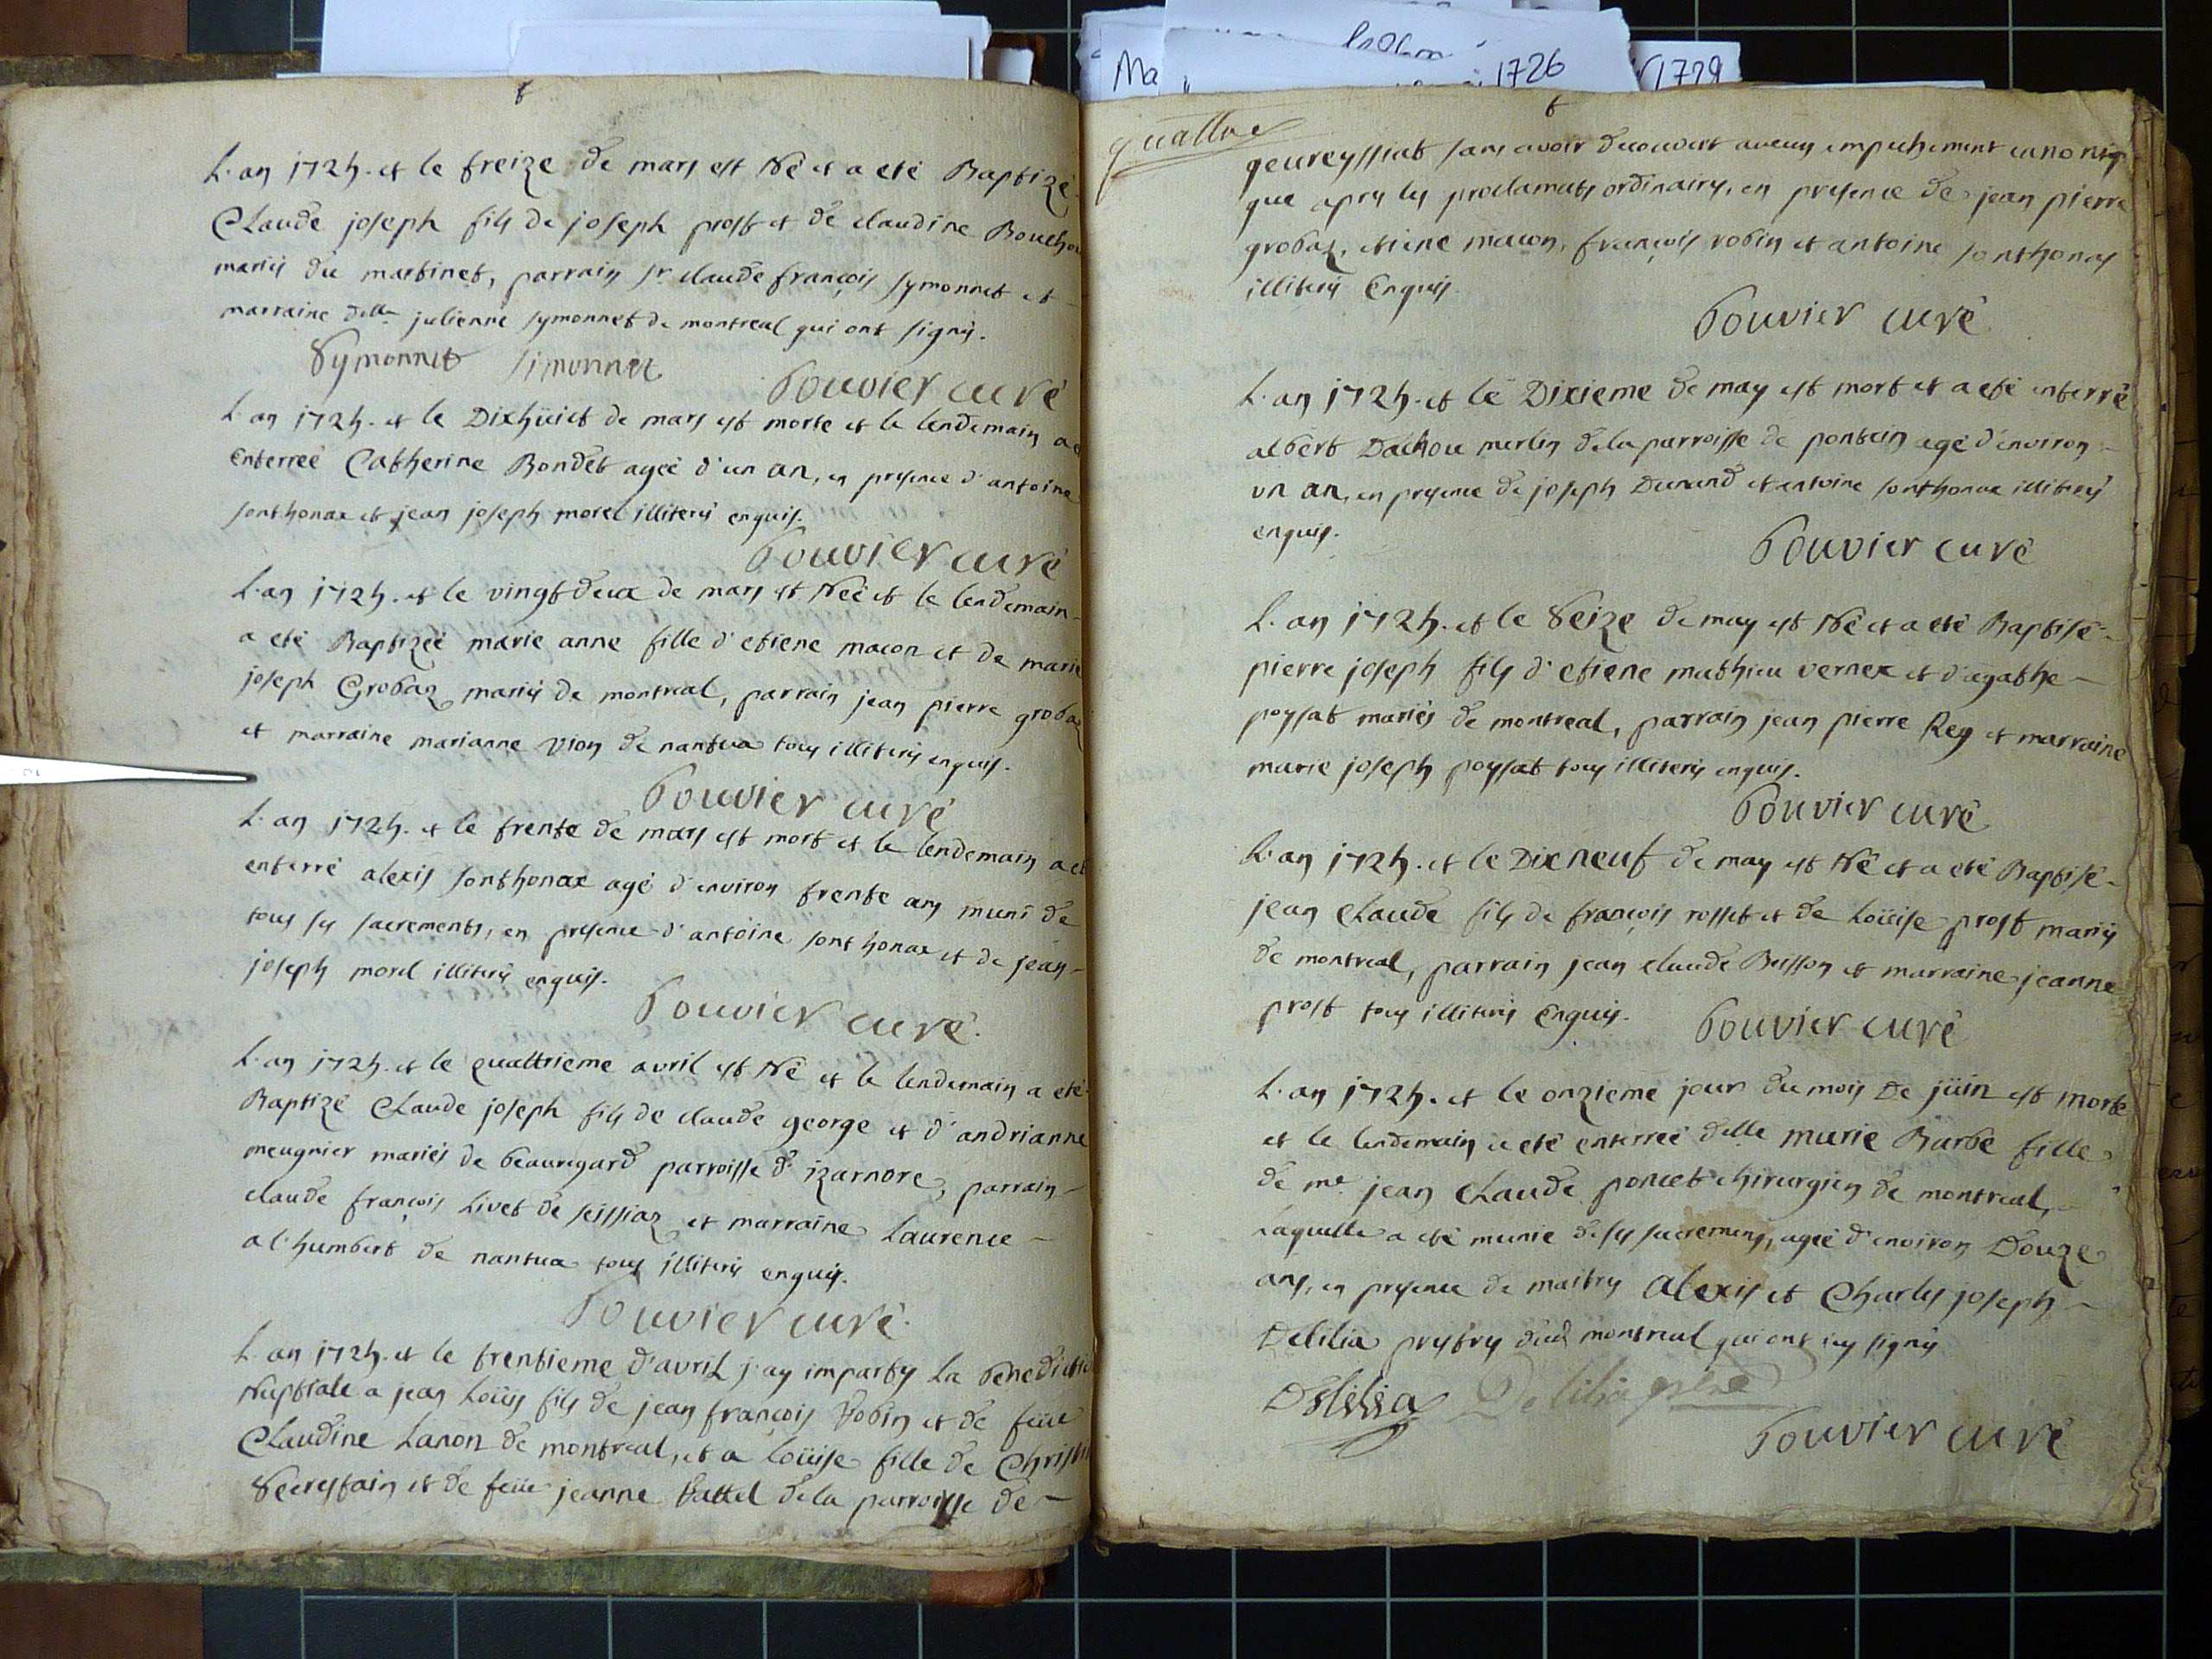 L'an 1724. et le treize de mars est Né et a eté Baptizé
Claude joseph fils de joseph prost et de claudine Bouchon
mariés du martinet, parrain sr. claude françois symonnet et
marraine delle julienne symonnet de montreal qui ont signés.
Symonnet simonnet
Bouvier curé
L'an 1724. et le Dixhüict de mars est morte et le lendemain a
Enterreé Catherine Bondet ageé d'un an, en presence d'antoine
sonthonax et jean joseph morel illiterés enquis.
Bouvier curé
L'an 1724. et le vingt deux de mars est Neé et le lendemain
a eté Baptizeé marie anne fille d'etiene macon et de marie
joseph Grobaz mariés de montreal, parrain jean pierre grobaz
et marraine marianne Vion de nantua tous illiterés enquis.
Bouvier curé
L'an 1724. et le trente de mars est mort et le lendemain a eté
enterré alexis sonthonax agé d'environ trente ans muni de
tous ses sacrements, en presence d'antoine sonthonax et de jean
joseph morel illiterés enquis.
Bouvier curé.
L'an 1724. et le quattrieme avril est Né et le lendemain a eté
Baptizé Claude joseph fils de claude george et d'andrianne
meugnier mariés de beauregard parroisse d'izarnore, parrain
claude françois Livet de seissiaz et marraine Laurence
al'humbert de nantua tous illiterés enquis.
Bouvier curé.
L'an 1724. et le trentieme d'avril j'ay imparty La benediction
Nuptiale a jean Loüis fils de jean françois Robin et de feüe
Claudine Lanon de montreal, et a loüise fille de
Secrestain et de feüe jeanne battel de la parroisse de
quattre
geureyssiat sans avoir decouvert aucun empechement canoniq
que apres les proclamats ordinaires, en presence de jean pierre
grobaz, etiene macon, françois robin et antoine sonthonas
illiterés Enquis.
Bouvier curé
L'an 1724. et le Dixieme de may est mort et a eté enterré
albert merlin de la parroisse de poncin agé d'environ
un an, en presence de joseph Durand et antoine sonthonax illiterés
enquis.
Bouvier curé
L'an 1724. et le Seize de may est Né et a eté Baptisé
pierre joseph fils d'etiene mathieu vernex et d'agathe
poysat mariés de montreal, parrain jean pierre Rey et marraine
marie joseph poysat tous illiterés enquis.
Bouvier curé
L'an 1724. et le Dixneuf de may est Né et a eté Baptisé
jean Claude fils de françois rosset et de Loüise prost mariés
de montreal, parrain jean claude Buisson et marraine jeanne
prost tous illiterés Enquis.
Bouvier curé
L'an 1724. et le onzieme jour du mois De jüin est morte
et le lendemain a eté enterreé delle marie Barbe fille
de me. jean Claude poncet chirurgien de montreal,
Laquelle a eté munie de ses sacrements, ageé d'environ Douze
ans, en presence de maitres Alexis et Charles joseph
Delilia prestres dud montreal qui ont icy signés
Delilia Delilia
Bouvier curé
1726
1729